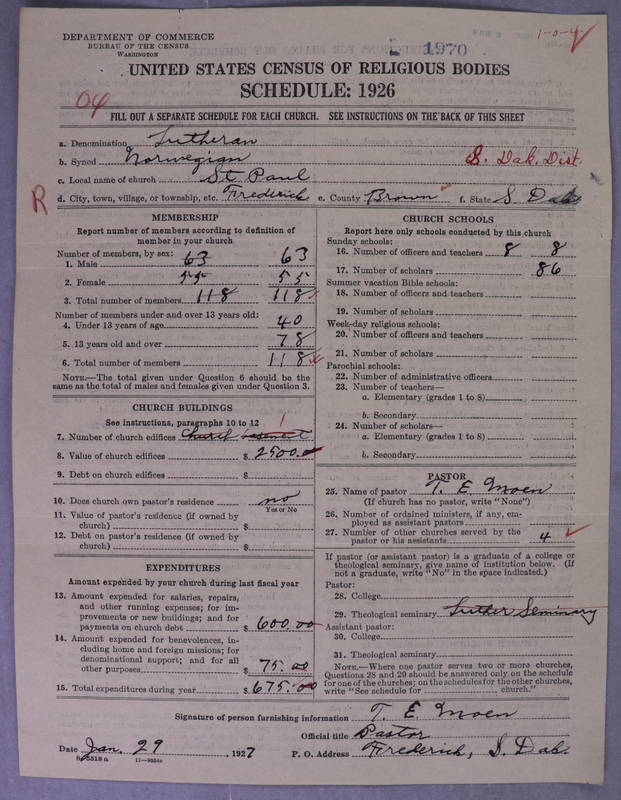 DEPARTMENT OF COMMERCE
BUREAU OF THE CENSUS
WASHINGTON
1970
1-0-4
UNITED STATES CENSUS OF RELIGIOUS BODIES
SCHEDULE: 1926
04
FILL OUT A SEPARATE SCHEDULE FOR EACH CHURCH. SEE INSTRUCTIONS ON THE BACK OF THIS SHEET
a. Denomination Lutheran
b. Synod Norwegian S. Dak. Dist.
c. Local name of church St. Paul
R
d. City, town, village, or township, etc. Frederick e. County Brown f. State S. Dak
MEMBERSHIP
Report number of members according to definition of member in your church
Number of members, by sex:
1. Male 63 63
2. Female 55 55
3. Total number of members 118 118
Number of members under and over 13 years old:
4. Under 13 years of age 40
5. 13 years old and over 78
6. Total number of members 118
NOTE.—The total given under Question 6 should be the same as the total of males and females given under Question 3.
CHURCH BUILDINGS
See instructions, paragraphs 10 to 12
7. Number of church edifices Church basement 1
8. Value of church edifices $ 2500.00
9. Debt on church edifices $
10. Does church own pastor's residence no
Yes or No
11. Value of pastor's residence (if owned by church) $
12. Debt on pastor's residence (if owned by church) $
EXPENDITURES
Amount expended by your church during last fiscal year
13. Amount expended for salaries, repairs, and other running expenses; for improvements or new buildings; and for payments on church debt $ 600.00
14. Amount expended for benevolences, including home and foreign missions; for denominational support; and for all other purposes $ 75.00
15. Total expenditures during year $ 675.00
CHURCH SCHOOLS
Report here only schools conducted by this church
Sunday schools:
16. Number of officers and teachers 8 8
17. Number of scholars 86
Summer vacation Bible schools:
18. Number of officers and teachers
19. Number of scholars
Week-day religious schools:
20. Number of officers and teachers
21. Number of scholars
Parochial schools:
22. Number of administrative officers
23. Number of teachers—
a. Elementary (grades 1 to 8)
b. Secondary
24. Number of scholars—
a. Elementary (grades 1 to 8)
b. Secondary
PASTOR
25. Name of pastor T. E. Moen
(If church has no pastor, write "None")
26. Number of ordained ministers, if any, employed as assistant pastors
27. Number of other churches served by the pastor or his assistants 4
If pastor (or assistant pastor) is a graduate of a college or theological seminary, give name of institution below. (If not a graduate, write "No" in the space indicated.)
Pastor:
28. College
29. Theological seminary Luther Seminary
Assistant pastor:
30. College
31. Theological seminary
NOTE.—Where one pastor serves two or more churches, Questions 28 and 29 should be answered only on the schedule for one of the churches; on the schedules for the other churches, write "See schedule for church."
Signature of person furnishing information T. E. Moen
Official title Pastor
Date Jan. 29, 1927 P. O. Address Frederick, S. Dak.
8-5518a 11—9054a